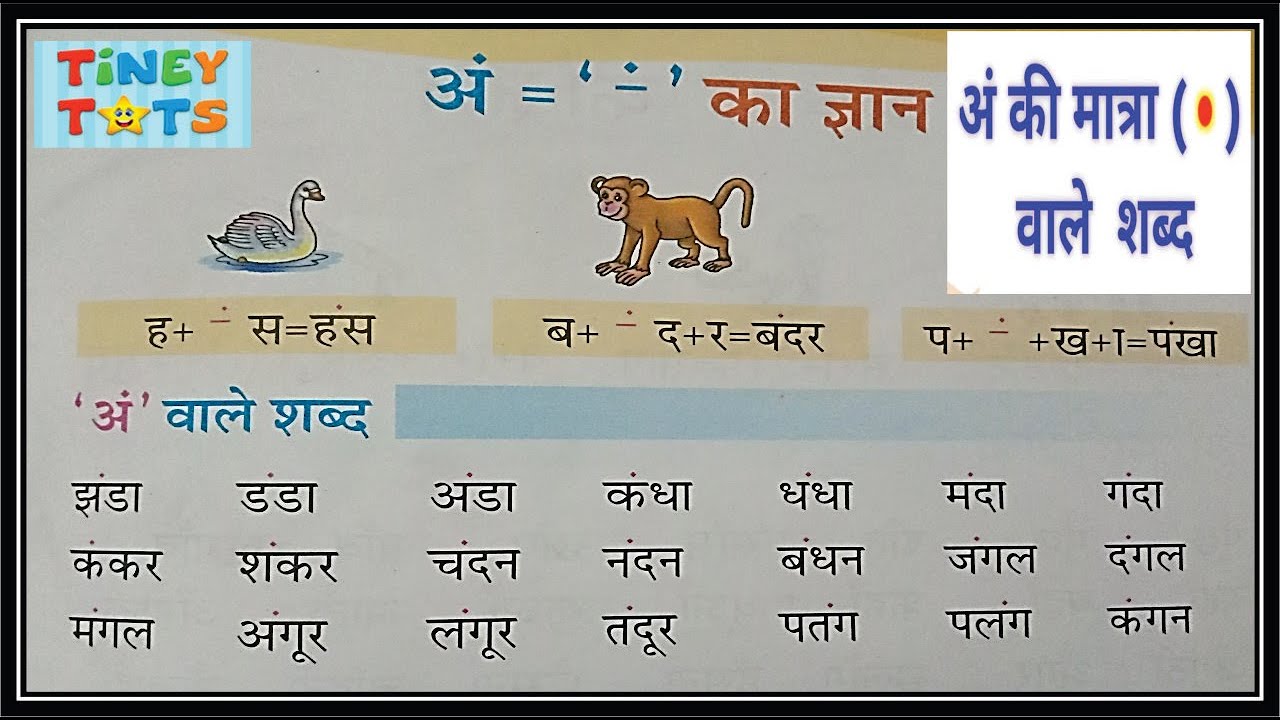 TiNEY
TOTS
अं = ‘ ं ’ का ज्ञान
अं की मात्रा (•)
वाले शब्द
ह+ ं स=हंस
ब+ ं द+र=बंदर
प+ ं +ख+ा=पंखा
‘अं’ वाले शब्द
झंडा डंडा अंडा कंधा धंधा मंदा गंदा
कंकर शंकर चंदन नंदन बंधन जंगल दंगल
मंगल अंगूर लंगूर तंदूर पतंग पलंग कंगन